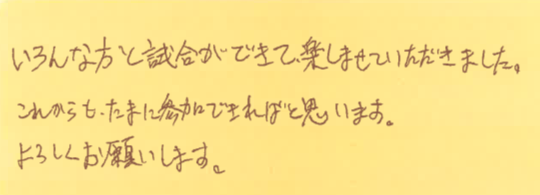 いろんな方と試合ができて、楽しませていただきました。
これからも、たまに参加できればと思います。
よろしくお願いします。